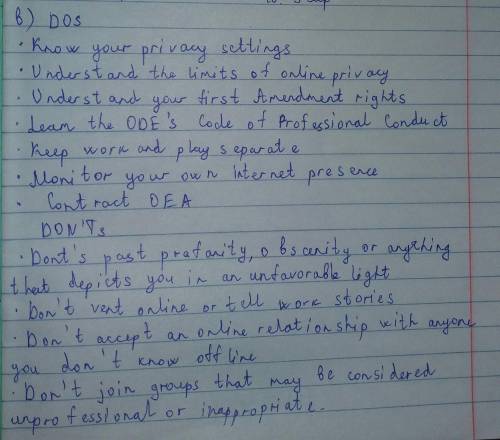 B) DOS
• Know your privacy settings
• Understand the limits of online privacy
• Understand your first Amendment rights
• Learn the ODE's Code of Professional Conduct
• Keep work and play separate
• Monitor your own Internet presence
• Contract OEA
DON'Ts
• Dont's past profanity, obscenity or anything
that depicts you in an unfavorable light
• Don't vent online or tell work stories
• Don't accept an online relationship with anyone
you don't know offline
• Don't join groups that may be considered
unprofessional or inappropriate.